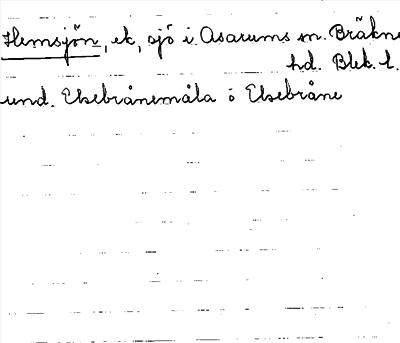 Hemsjön, ek, sjö i Asarums sn. Bräkne
hd. Blek. l.
und. Elsebrånemåla o Elsebråne